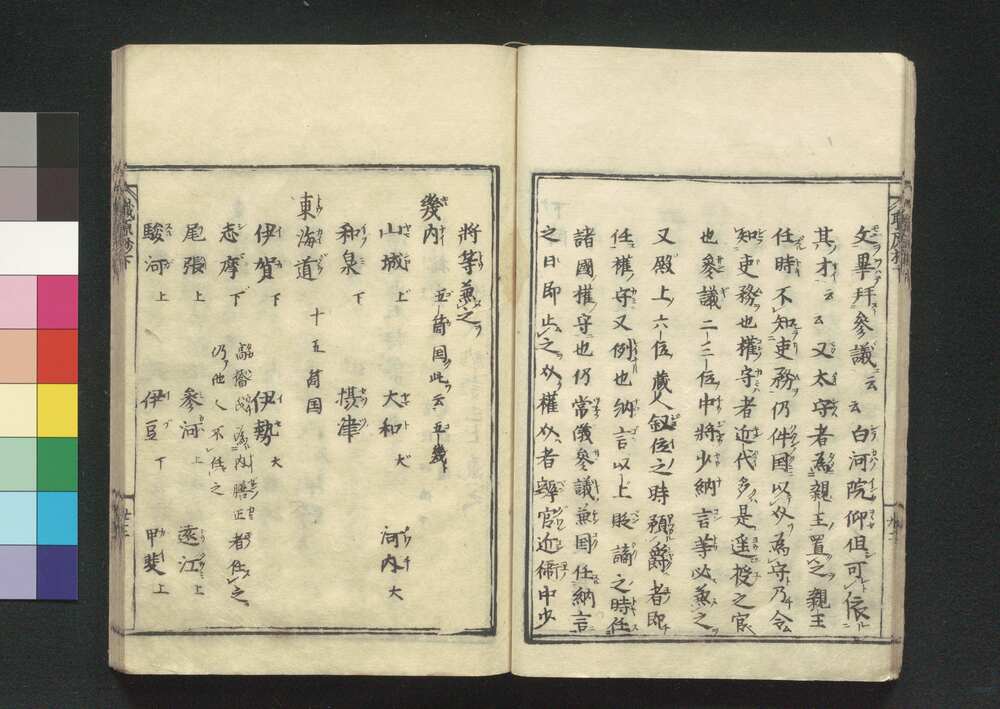 文畢拜參議云云白河院仰但可依
其才云云又太守者為親王置之親王
任時不知吏務仍件国以介為守乃令
知吏務也權守者近代多是遥授之官
也參議二三位中將少納言等必兼之
又殿上六位蔵人叙位之時預爵者即
任權守又例也納言以上貶謫之時任
諸國權守也仍常儀參議兼国任納言
之日即止之介權介者辨官近衞中少
將等兼之
畿内 五箇国此云五畿
山城上 大和大 河内大
和泉下 摂津
東海道 十五箇国
伊賀下 伊勢大
志摩下 高橋氏為内膳正者任之
仍他人不任之
尾張上 參河上 遠江上
駿河上 伊豆下 甲斐上